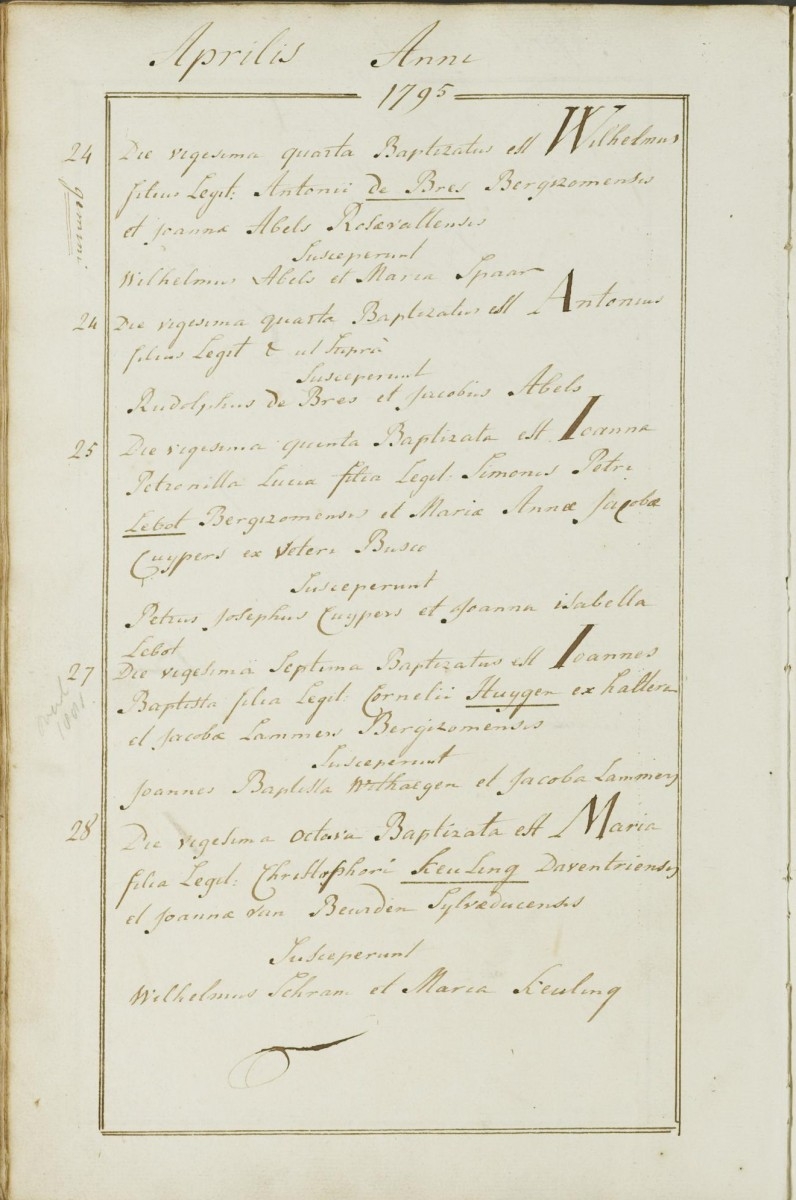 Aprilis Anni
1795
24 Die vigesima quarta Baptizatus est Wilhelmus
gemini
filius Legit: Antonii de Bres Bergizomensis
et Joannæ Abels Rosævallensis
Susceperunt
Wilhelmus Abels et Maria Spaar
24 Die vigesima quarta Baptizatus est Antonius
filius Legit & ut Suprà
Susceperunt
Rudolphus de Bres et Jacobus Abels
25 Die vigesima quinta Baptizata est Ioanna
Petronilla Lucia filia Legit: Simonis Petri
Lebot Bergizomensis et Mariæ Annæ Jacobæ
Cuypers ex Veteri Busco
Susceperunt
Petrus Josephus Cuypers et Joanna isabella
Lebot
27 Die vigesima Septima Baptizatus est Ioannes
Baptista filia Legit: Cornelii Huygen ex halteren
et Jacobæ Lammers Bergizomensis
Susceperunt
Joannes Baptista Withaegen et Jacoba Lammers
28 Die vigesima octava Baptizata est Maria
filia Legit: Christophori Keuling Daventriensis
et Joannæ van Beurden Sylvæducensis
Susceperunt
Wilhelmus Schram et Maria Keuling